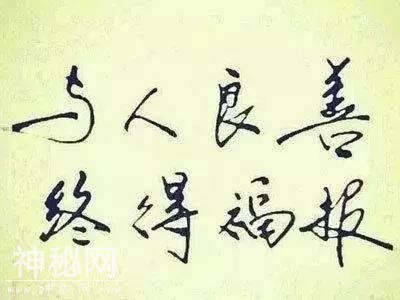 与人良善
终得福报
神秘网